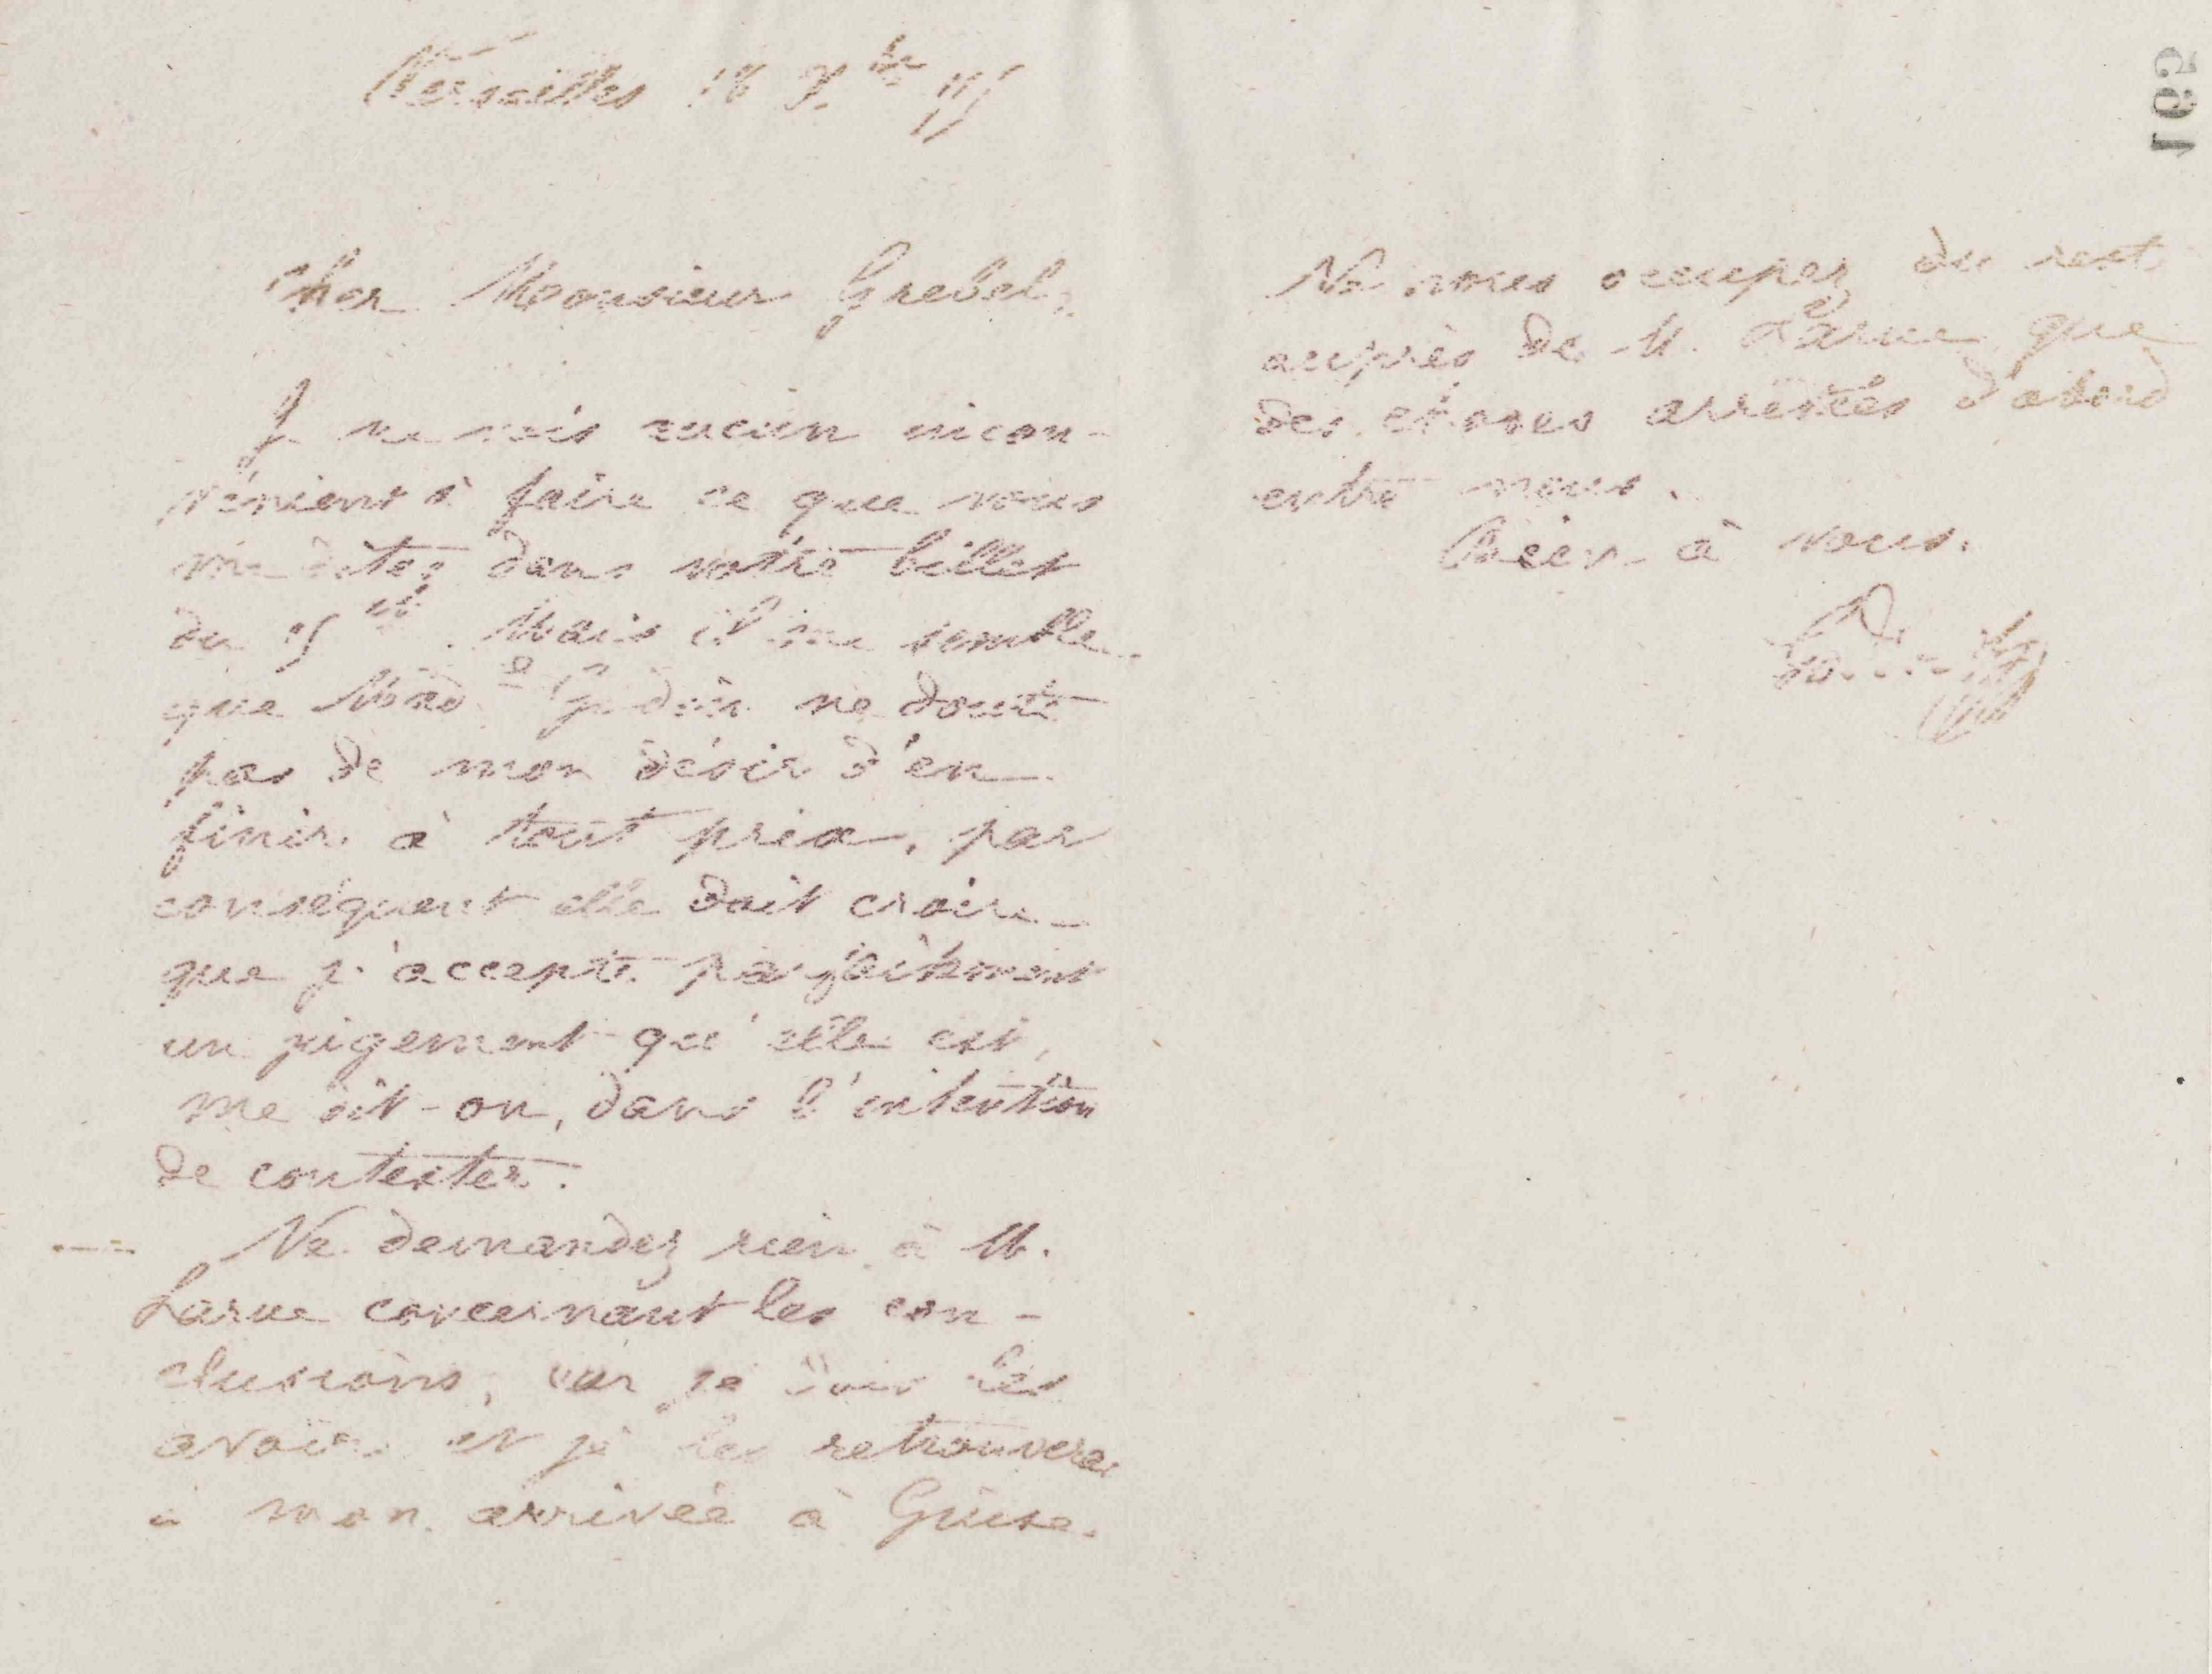 Versailles 16 X.bre 75
Cher Monsieur Grebel,
Je ne vois aucun incon-
vénient à faire ce que vous
me dites dans votre billet
du 15 ct. Mais il me semble
que Mad.e Godin ne doute
pas de mon désir d'en
finir à tout prix, par
conséquent elle doit croire
que j'accepte parfaitement
un jugement qu'elle est,
me dit-on, dans l'intention
de contester.
Ne demandez rien à M.
Larue concernant les con-
clusions, car je dois les
avoir et je les retrouverai
à mon arrivée à Guise.
Ne vous occupez du reste
auprès de M. Larue que
des choses arrêtées d'abord
entre nous.
Bien à vous.
Godin
165